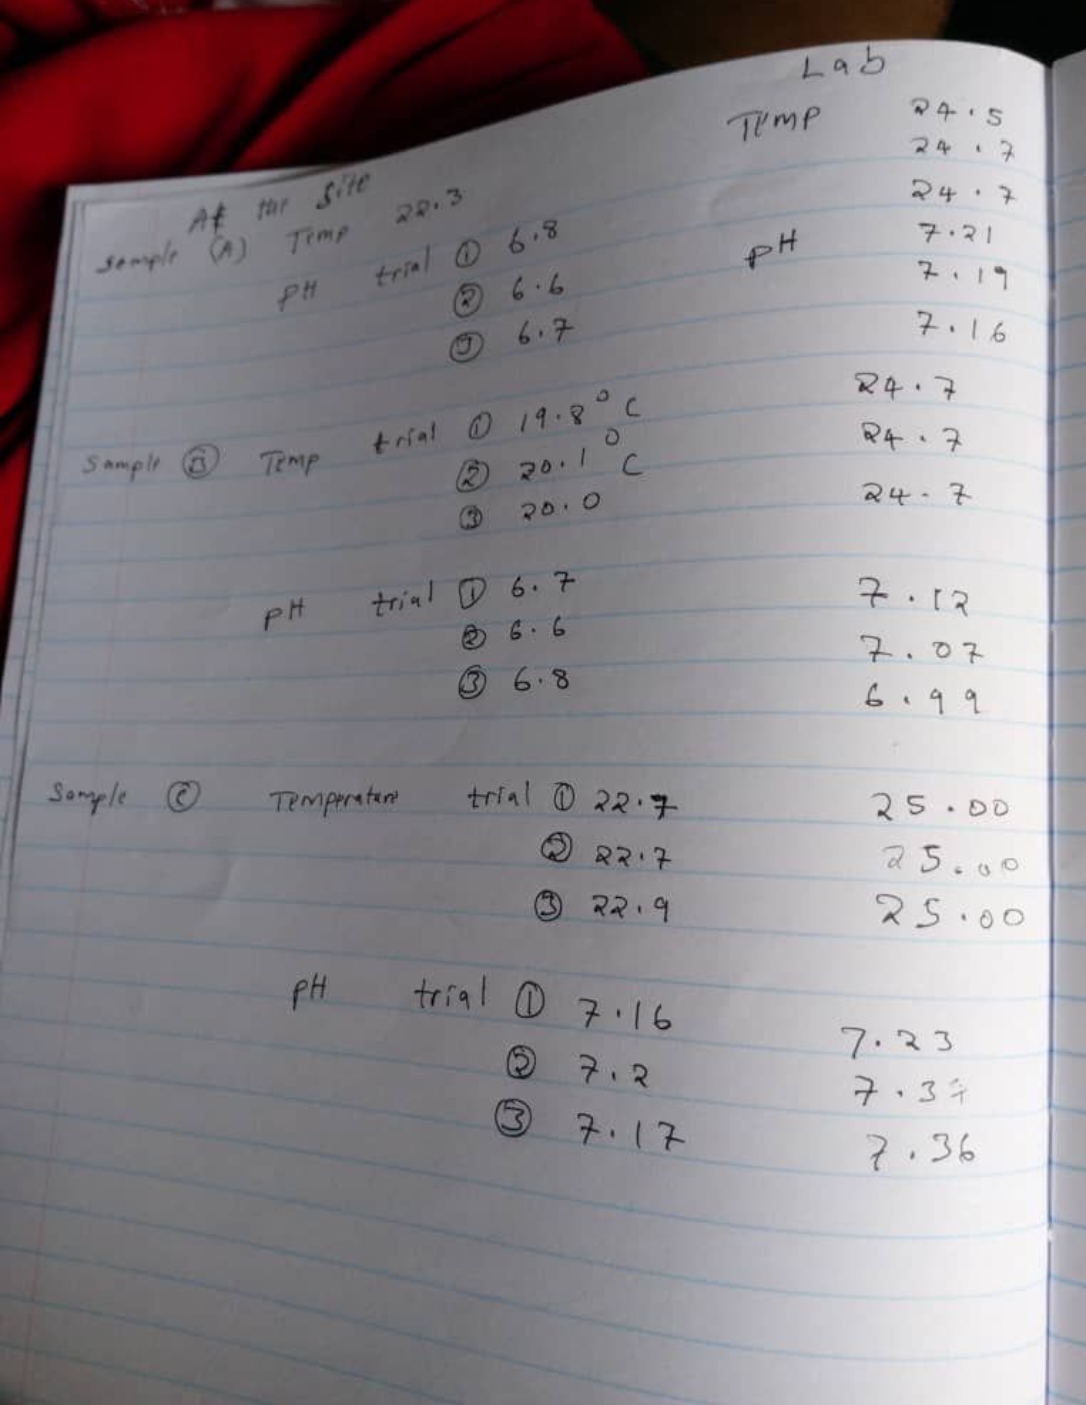 Lab
Temp 24.5
24.7
24.7
At the Site
Sample (A) Temp 22.3
pH trial ① 6.8
② 6.6
③ 6.7
pH 7.21
7.19
7.16
Sample Ⓑ Temp trial ① 19.8°C 24.7
② 20.1°C 24.7
③ 20.0 24.7
pH trial ① 6.7 7.12
② 6.6 7.07
③ 6.8 6.99
Sample Ⓒ Temperature trial ① 22.7 25.00
② 22.7 25.00
③ 22.9 25.00
pH trial ① 7.16 7.23
② 7.2
③ 7.17 7.36